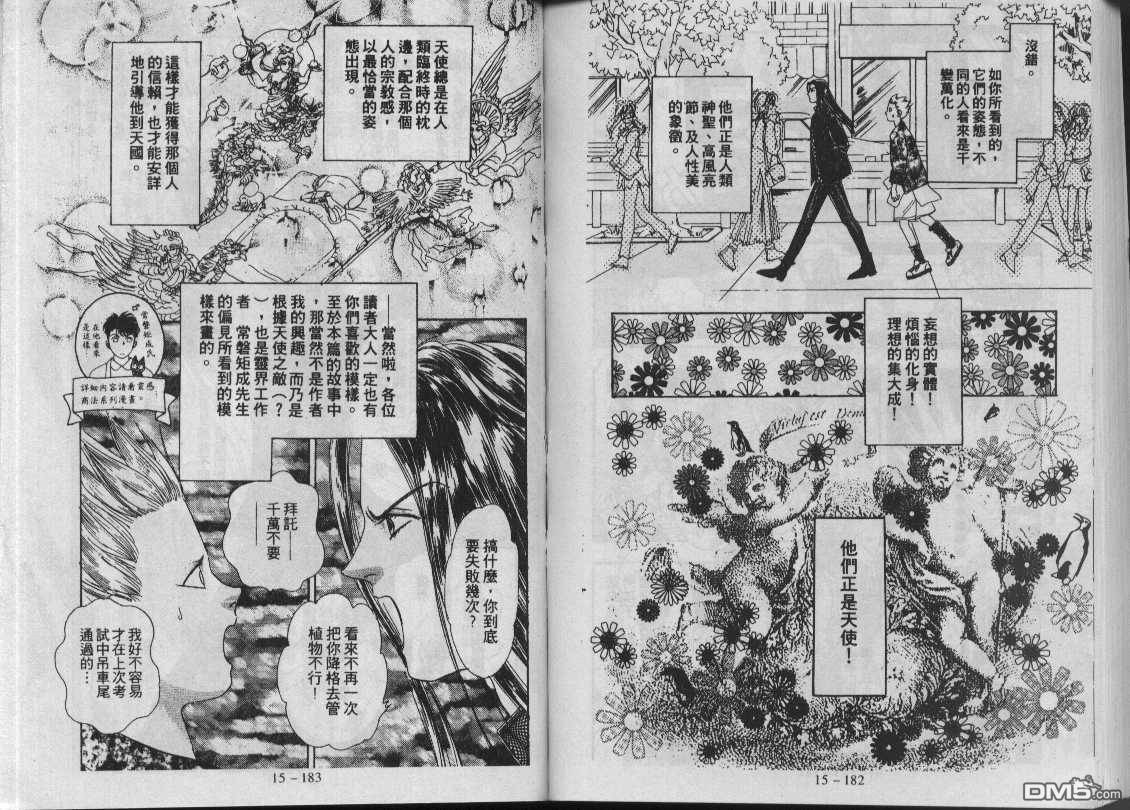 沒錯。
如你所看到的，
它們的姿態，不
同的人看來是千
變萬化
他們正是人類
神聖、高風亮
節、及人性美
的象徵。
妄想的實體！
煩惱的化身！
理想的集大成！
他們正是天使！
15－182
天使總是在人
類臨終時的枕
邊，配合那個
人的宗教感，
以最恰當的姿
態出現。
這樣才能獲得那個人
的信賴，也才能安詳
地引導他到天國。
——當然啦，各位
讀者大人一定也有
你們喜歡的模樣。
至於本篇的故事中
，那當然不是作者
我的興趣，而乃是
根據天使之敵（？
），也是靈界工作
者　常磐矩成先生
的偏見所看到的模
樣來畫的。
常磐矩成氏
在他看來
是這樣
詳細內容請看靈感
商法系列漫畫。
搞什麼，你到底
要失敗幾次？
拜託——
千萬不要
看來不再一次
把你降格去管
植物不行！
我好不容易
才在上次考
試中吊車尾
通過的…
15－183
DM5.com